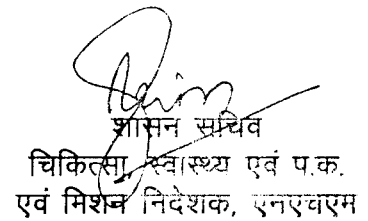 शासन सचिव
चिकित्सा, स्वास्थ्य एवं प.क.
एवं मिशन निदेशक, एनएचएम